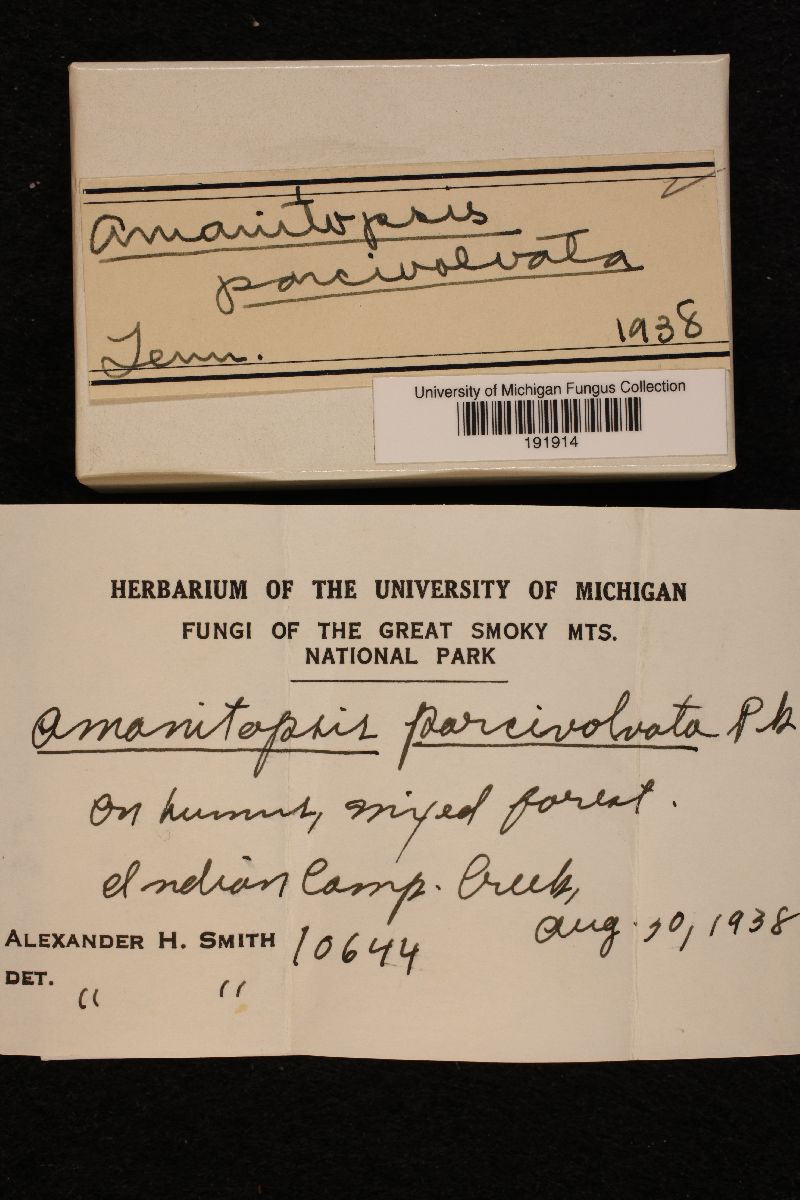 Amanitopsis
parcivolvata
Tenn. 1938
University of Michigan Fungus Collection
191914
HERBARIUM OF THE UNIVERSITY OF MICHIGAN
FUNGI OF THE GREAT SMOKY MTS.
NATIONAL PARK
Amanitopsis parcivolvata Pk
On humus, mixed forest.
Indian Camp. Creek,
Aug. 30, 1938
ALEXANDER H. SMITH 10644
DET. " "